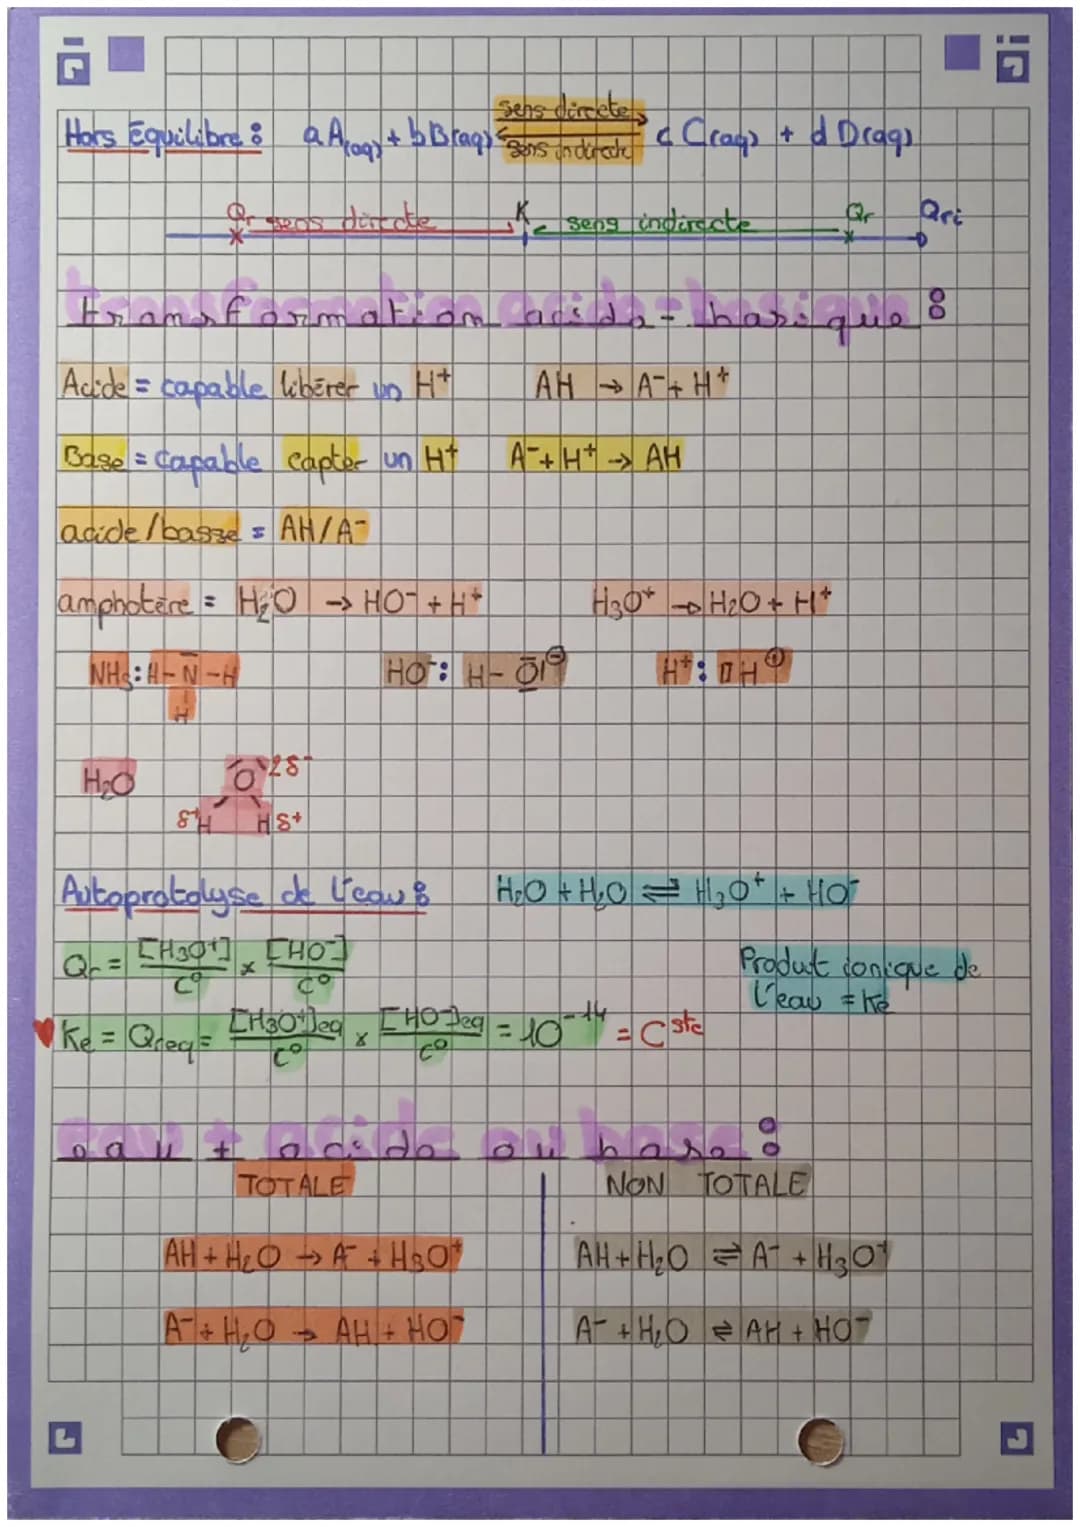 Hors Equilibre : a A(aq) + b B(aq) sens directe / sens indirecte c C(aq) + d D(aq)
Qr sens directe K sens indirecte Qr Qri
transformation acido-basique :
Acide = capable libérer un H⁺ AH → A⁻ + H⁺
Base = capable capter un H⁺ A⁻ + H⁺ → AH
acide/basse = AH/A⁻
amphotère = H₂O → HO⁻ + H⁺ H₃O⁺ → H₂O + H⁺
NH₃ : H - N - H HO⁻ : H - O|⊖ H⁺ : □ H ⊕
H
H₂O O 2δ⁻
δ⁺ H H δ⁺
Autoprotolyse de l'eau : H₂O + H₂O ⇌ H₃O⁺ + HO⁻
Qr = [H₃O⁺]/C° × [HO⁻]/C°
Produit ionique de
l'eau = Ke
♥ Ke = Qreq = [H₃O⁺]eq/C° × [HO⁻]eq/C° = 10⁻¹⁴ = Cste
eau + acide ou base :
TOTALE NON TOTALE
AH + H₂O → A⁻ + H₃O⁺ AH + H₂O ⇌ A⁻ + H₃O⁺
A⁻ + H₂O → AH + HO⁻ A⁻ + H₂O ⇌ AH + HO⁻